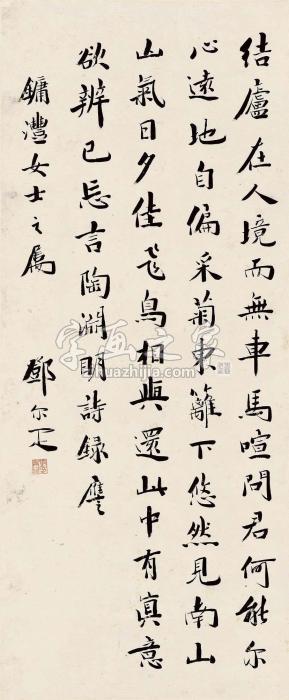 结廬在人境而無車馬喧問君何能尔
心遠地自偏采菊東籬下悠然見南山
山氣日夕佳飞鳥相與還此中有真意
欲辨已忘言陶淵明詩録應
鏞澧女士之属 鄧尔疋
字画之家
huazhijia.com